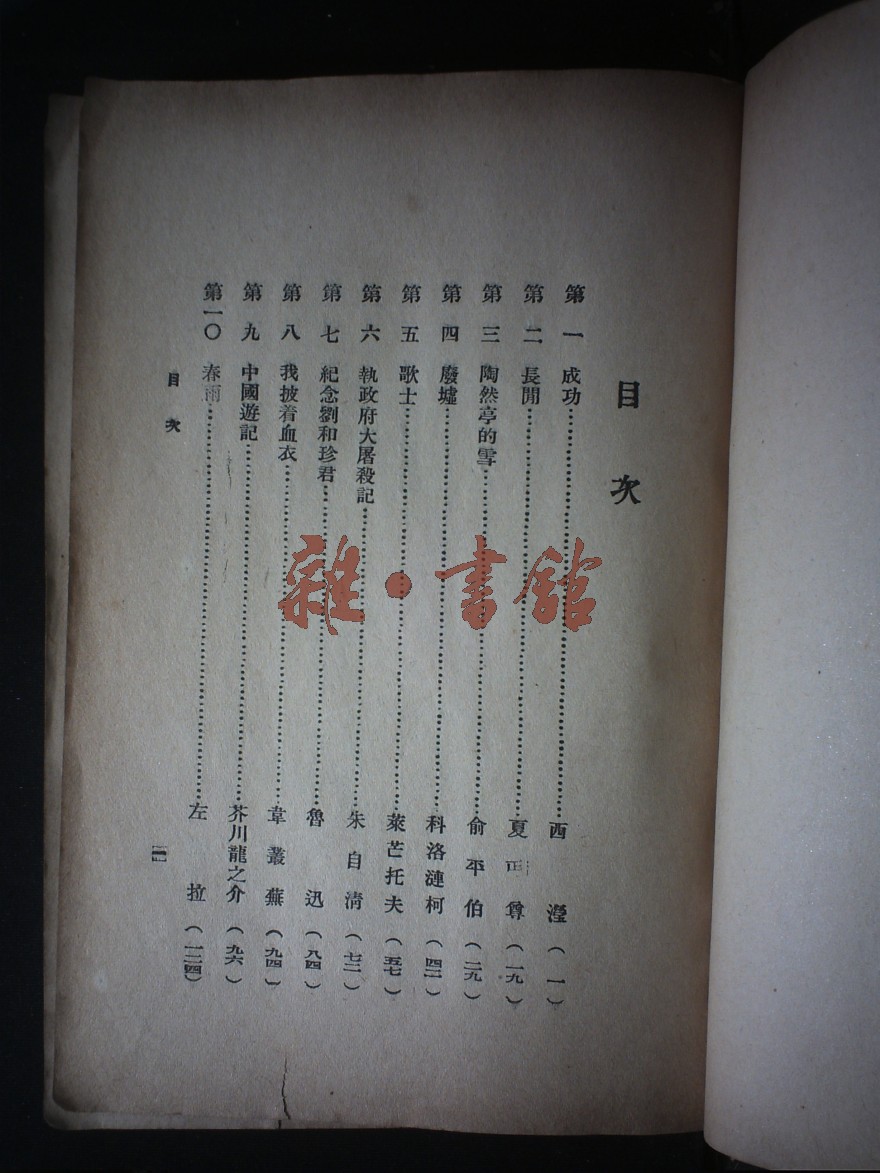 目次
第一 成功……西瀅（一）
第二 長閒……夏丏尊（一九）
第三 陶然亭的雪……俞平伯（二九）
第四 廢墟……科洛漣柯（四二）
第五 歌士……萊芒托夫（五七）
第六 執政府大屠殺記……朱自清（七二）
第七 紀念劉和珍君……魯迅（八四）
第八 我披着血衣……韋叢蕪（九四）
第九 中國遊記……芥川龍之介（九六）
第一〇 春雨……左拉（一二四）
目次
雜·書館